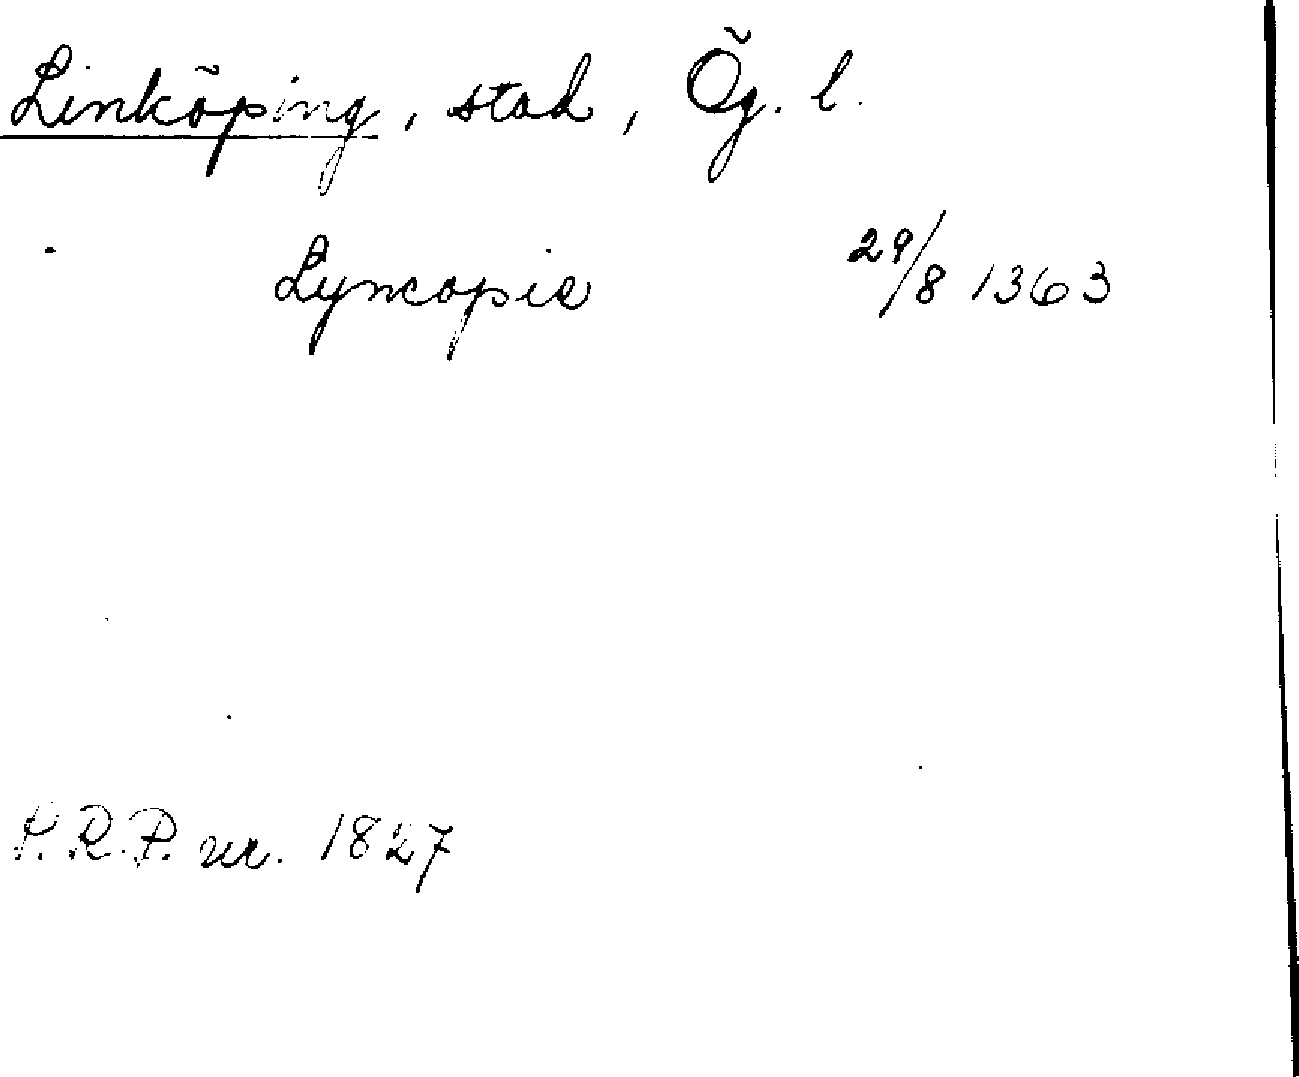 Linköping, stad, Ög. l.
Lyncopie 29/8 1363
P.R.P. nr. 1827